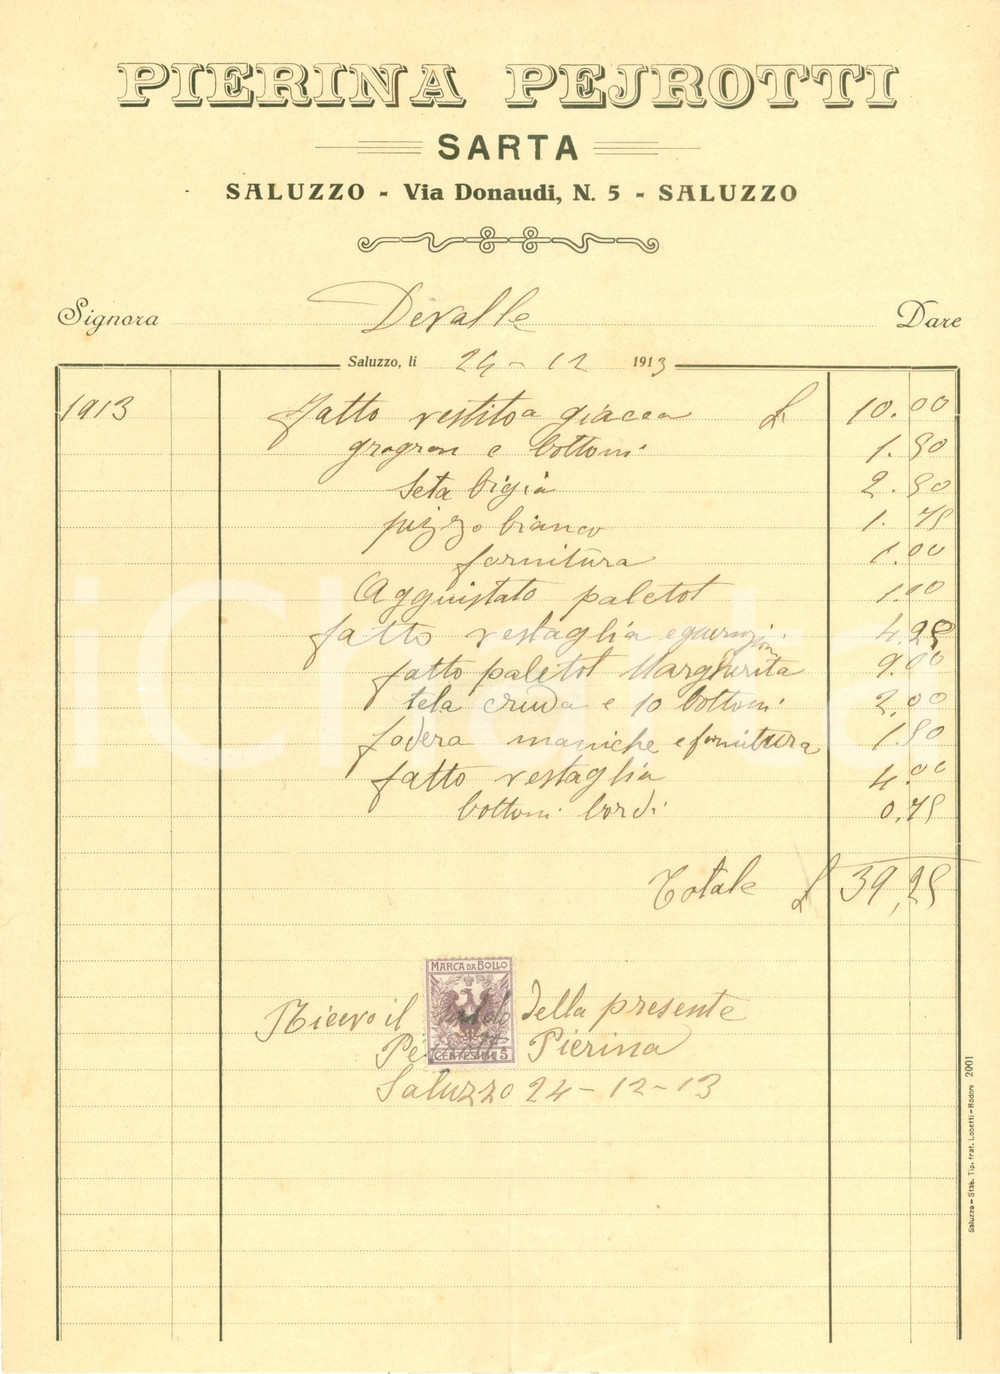 PIERINA PEJROTTI
SARTA
SALUZZO - Via Donaudi, N. 5 - SALUZZO
Signora Devalle Dare
Saluzzo, li 24 - 12 1913
1913 fatto vestito a giacca £ 10.00
grogron e bottoni 1.50
Seta bigia 2.50
pizzo bianco 1.75
fornitura 1.00
Agguistato paletot 1.00
fatto vestaglia e 4.25
fatto paletot Margherita 9.00
tela cruda e 10 bottoni 2,00
fodera maniche e fornitura 1.50
fatto vestaglia 4.00
bottoni bordi 0,75
Totale £ 39,25
MARCA DA BOLLO
Ricevo il saldo della presente
Pejrotti Pierina
CENTESIMI 5
Saluzzo 24-12-13
Saluzzo - Stab. Tip. frat. Lobetti-Bodoni 2001
iCharta